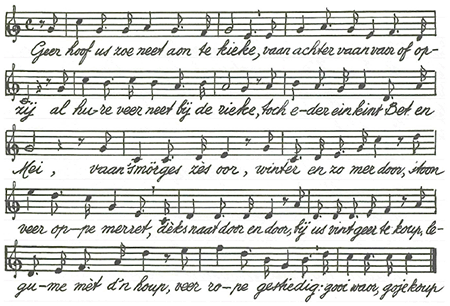 Geer hoof us zoe neet aon te kieke, vaan achter vaan vaor of op-
zij al hu-re veer neet bij de rieke, toch e-der ein kint Bet en
Mei, vaan 'smörges zès oor, winter en zo mer door, stoon
veer op-pe merret, dèks naat door en door, bij us vint geer te koup, le-
gu-me mèt d'n houp, veer ro-pe gestiedig: gooi waor, goje koup